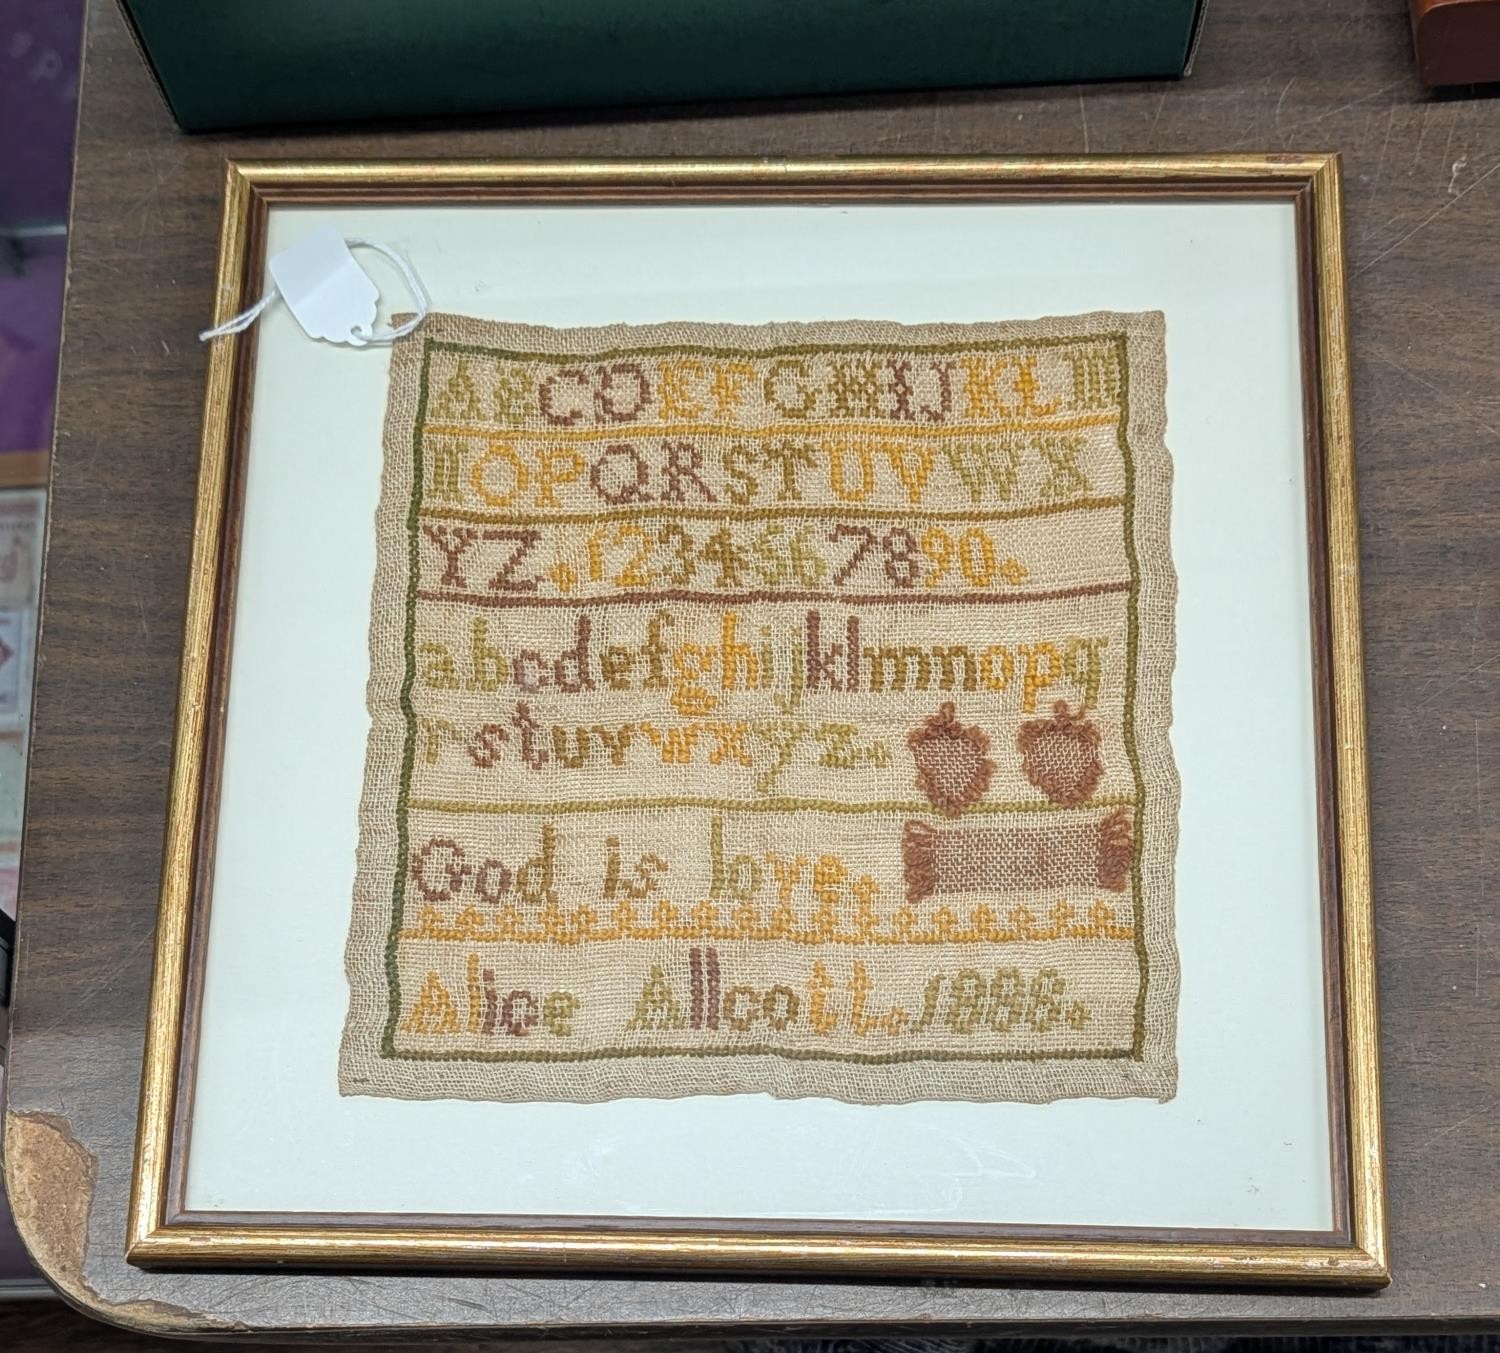 ABCDEFGHIJKLM
NOPQRSTUVWX
YZ.1234567890.
abcdefghijklmnopq
rstuvwxyz.
God is love.
Alice Allcott. 1886.